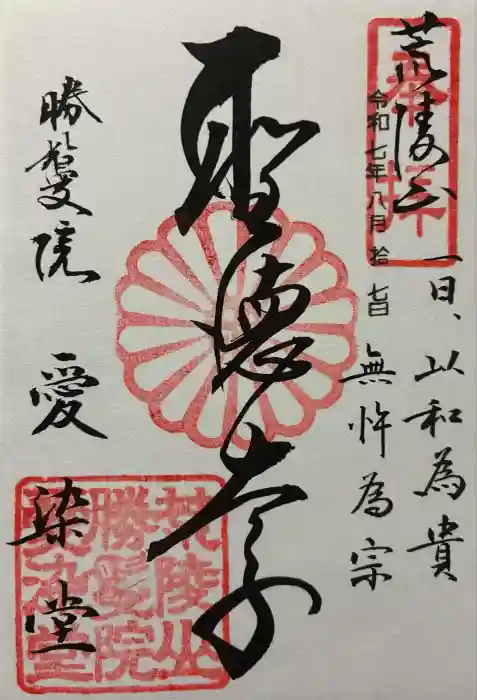 荒陵山
奉拝
令和七年八月拾七日
一曰、以和為貴
無忤為宗
聖徳太子
勝鬘院
愛染堂
荒陵山
勝鬘院
愛染堂